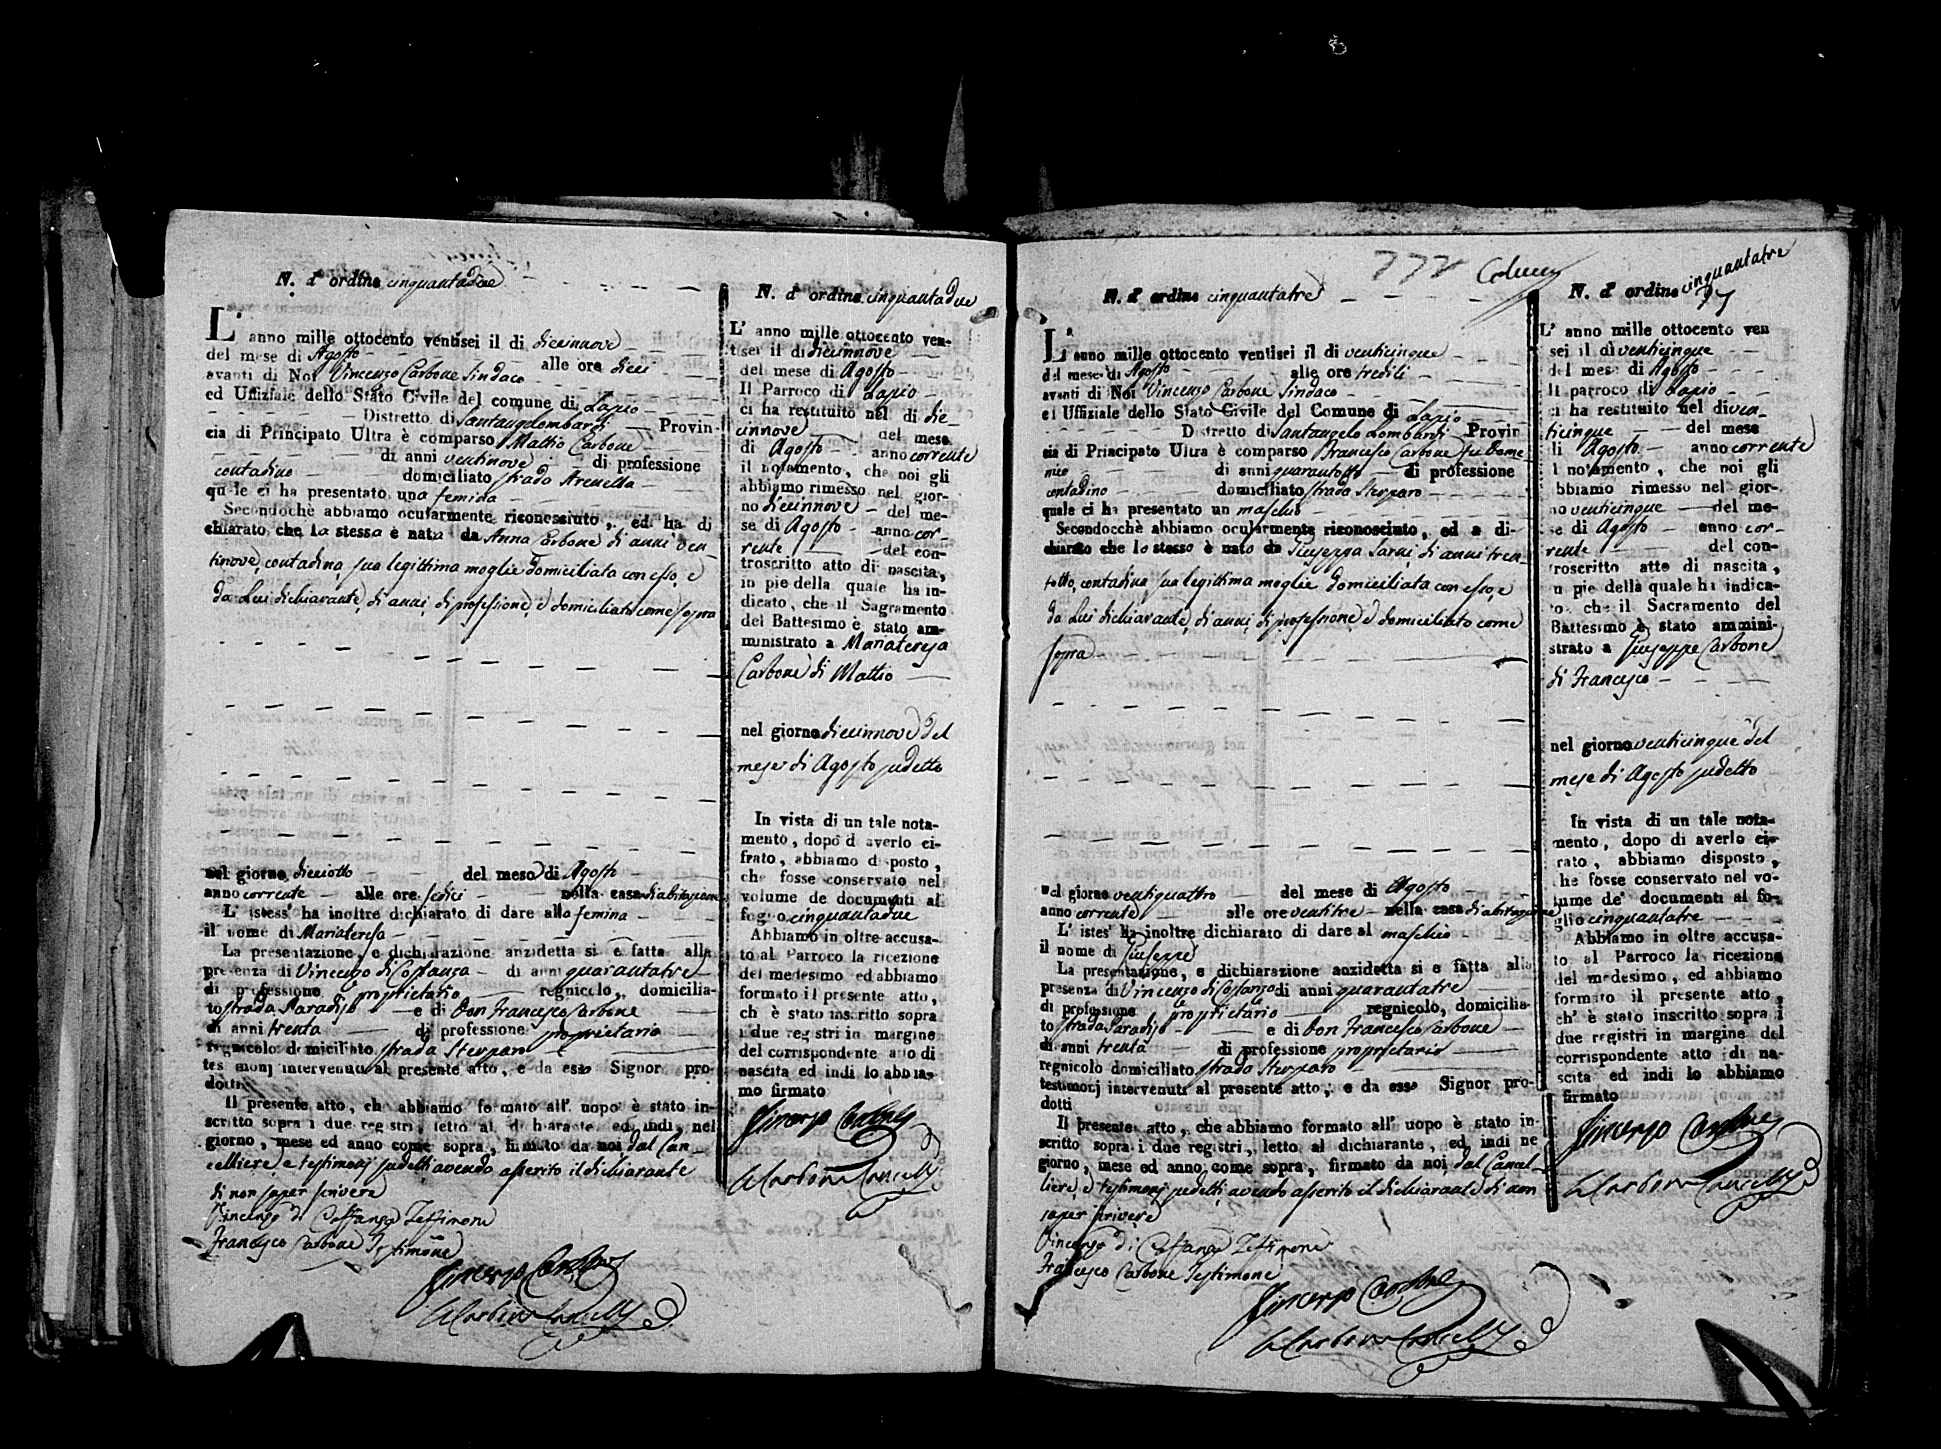 N. d' ordine cinquantadue
L' anno mille ottocento ventisei il di diecinnove
del mese di Agosto alle ore dieci
avanti di Noi Vincenzo Carbone Sindaco
ed Uffiziale dello Stato Civile del comune di Lapio
Distretto di Santangelombardi Provin-
cia di Principato Ultra è comparso Mattio Carbone
di anni ventinove di professione
contadino domiciliato strada Arenella
quale ci ha presentato una femina
Secondochè abbiamo ocularmente riconosciuto, ed ha di
chiarato che la stessa è nata da Anna Carbone di anni ven
tinove, contadina, sua legittima moglie domiciliata con esso, e
da Lui dichiarante, di anni, di professione, e domiciliato come sopra
nel giorno dieciotto del mese di Agosto
anno corrente alle ore sedici nella casa di abitazione
L' istess' ha inoltre dichiarato di dare alla femina
il nome di Mariateresa
La presentazione, e dichiarazione anzidetta si è fatta alla
presenza di Vincenzo di Costanza di anni quarantatre
di professione proprietario regnicolo, domicilia-
to strada Paradiso e di Don Francesco Carbone
di anni trenta di professione proprietario
regnicolo domiciliato strada Sterparo
testimonj intervenuti al presente atto, e da esso Signor pro-
dotti
Il presente atto, che abbiamo formato all' uopo è stato in-
scritto sopra i due registri, letto al dichiarante ed, indi, nel
giorno, mese ed anno come sopra, firmato da noi dal Can_
celliere, e testimonj sudetti avendo asserito il dichiarante
di non saper scrivere
Vincenzo di Costanza Testimone
Francesco Carbone Testimone
Vincenzo Carbone
Carbone Cancell
N. d' ordine cinquantadue
L' anno mille ottocento ven-
tisei il di diecinnove
del mese di Agosto
Il Parroco di Lapio
ci ha restituito nel di die_
cinnove del mese
di Agosto anno corrente
il notamento, che noi gli
abbiamo rimesso nel gior-
no diecinnove del me-
se di Agosto anno cor-
rente del con-
troscritto atto di nascita,
in piè della quale ha in-
dicato, che il Sagramento
del Battesimo è stato am-
ministrato a Mariateresa
Carbone di Mattio
nel giorno diecinnove del
mese di Agosto sudetto
In vista di un tale nota-
mento, dopo d averlo ci-
frato, abbiamo disposto,
che fosse conservato nel
volume de documenti al
foglio cinquantadue
Abbiamo in oltre accusa-
to al Parroco la ricezione
del medesimo ed abbiamo
formato il presente atto,
ch è stato inscritto sopra
i due registri in margine
del corrispondente atto di
nascita ed indi lo abbia-
mo firmato
Vincenzo Carbone
Carbone Cancell
772
N. d' ordine cinquantatre
L' anno mille ottocento ventisei il di venticinque
del mese di Agosto alle ore tredici
avanti di Noi Vincenzo Carbone Sindaco
ed Uffiziale dello Stato Civile del Comune di Lapio
Distretto di Santangelo Lombardi Provin
cia di Principato Ultra è comparso Francesco Carbone fu Dome
nico di anni quarantotto di professione
contadino domiciliato strada Sterparo
quale ci ha presentato un maschio
Secondocchè abbiamo ocularmente riconosciuto, ed a di-
chiarato che lo stesso è nato da Giuseppa Sarni di anni tren_
totto, contadina sua legittima moglie domiciliata con esso, e
da Lui dichiarante, di anni, di professione e domiciliato come
sopra
nel giorno ventiquattro del mese di Agosto
anno corrente alle ore ventitre nella casa di abitazione
L' istes' ha inoltre dichiarato di dare al maschio
il nome di Giuseppe
La presentazione, e dichiarazione anzidetta si e fatta alla
presenza di Vincenzo di Costanzo di anni quarantatre
di professione proprietario regnicolo, domicilia-
to strada Paradiso e di Don Francesco Carbone
di anni trenta di professione proprietario
regnicolo domiciliato strada Sterparo
testimonj intervenuti al presente atto, e da esso Signor pro-
dotti
Il presente atto, che abbiamo formato all' uopo è stato in-
scritto sopra i due registri, letto al dichiarante, ed, indi ne
giorno, mese ed anno come sopra, firmato da noi dal Cancel_
liere, e testimonj sudetti, avendo asserito il dichiarante di non
saper scrivere
Vincenzo di Costanza Testimone
Francesco Carbone Testimone
Vincenzo Carbone
Carbone Cancell
N. d' ordine cinquantatre
L' anno mille ottocento ven
tisei il di venticinque
del mese di Agosto
Il parroco di Lapio
ci ha restituito nel di ven_
ticinque del mese
di Agosto anno corrente
il notamento, che noi gli
abbiamo rimesso nel gior-
no venticinque del me-
se di Agosto anno cor-
rente del con-
troscritto atto di nascita,
in piè della quale ha indica-
to, che il Sacramento del
Battesimo è stato ammini-
strato a Giuseppe Carbone
di Francesco
nel giorno venticinque del
mese di Agosto sudetto
In vista di un tale nota-
mento, dopo di averlo cif-
rato, abbiamo disposto,
che fosse conservato nel vo-
lume de' documenti al fo-
glio cinquantatre
Abbiamo in oltre accusa-
to al Parroco la ricezione
del medesimo, ed abbiamo
formato il presente atto,
ch' è stato inscritto sopra i
due registri in margine del
corrispondente atto di na-
scita ed indi lo abbiamo
firmato
Vincenzo Carbone
Carbone Cancell